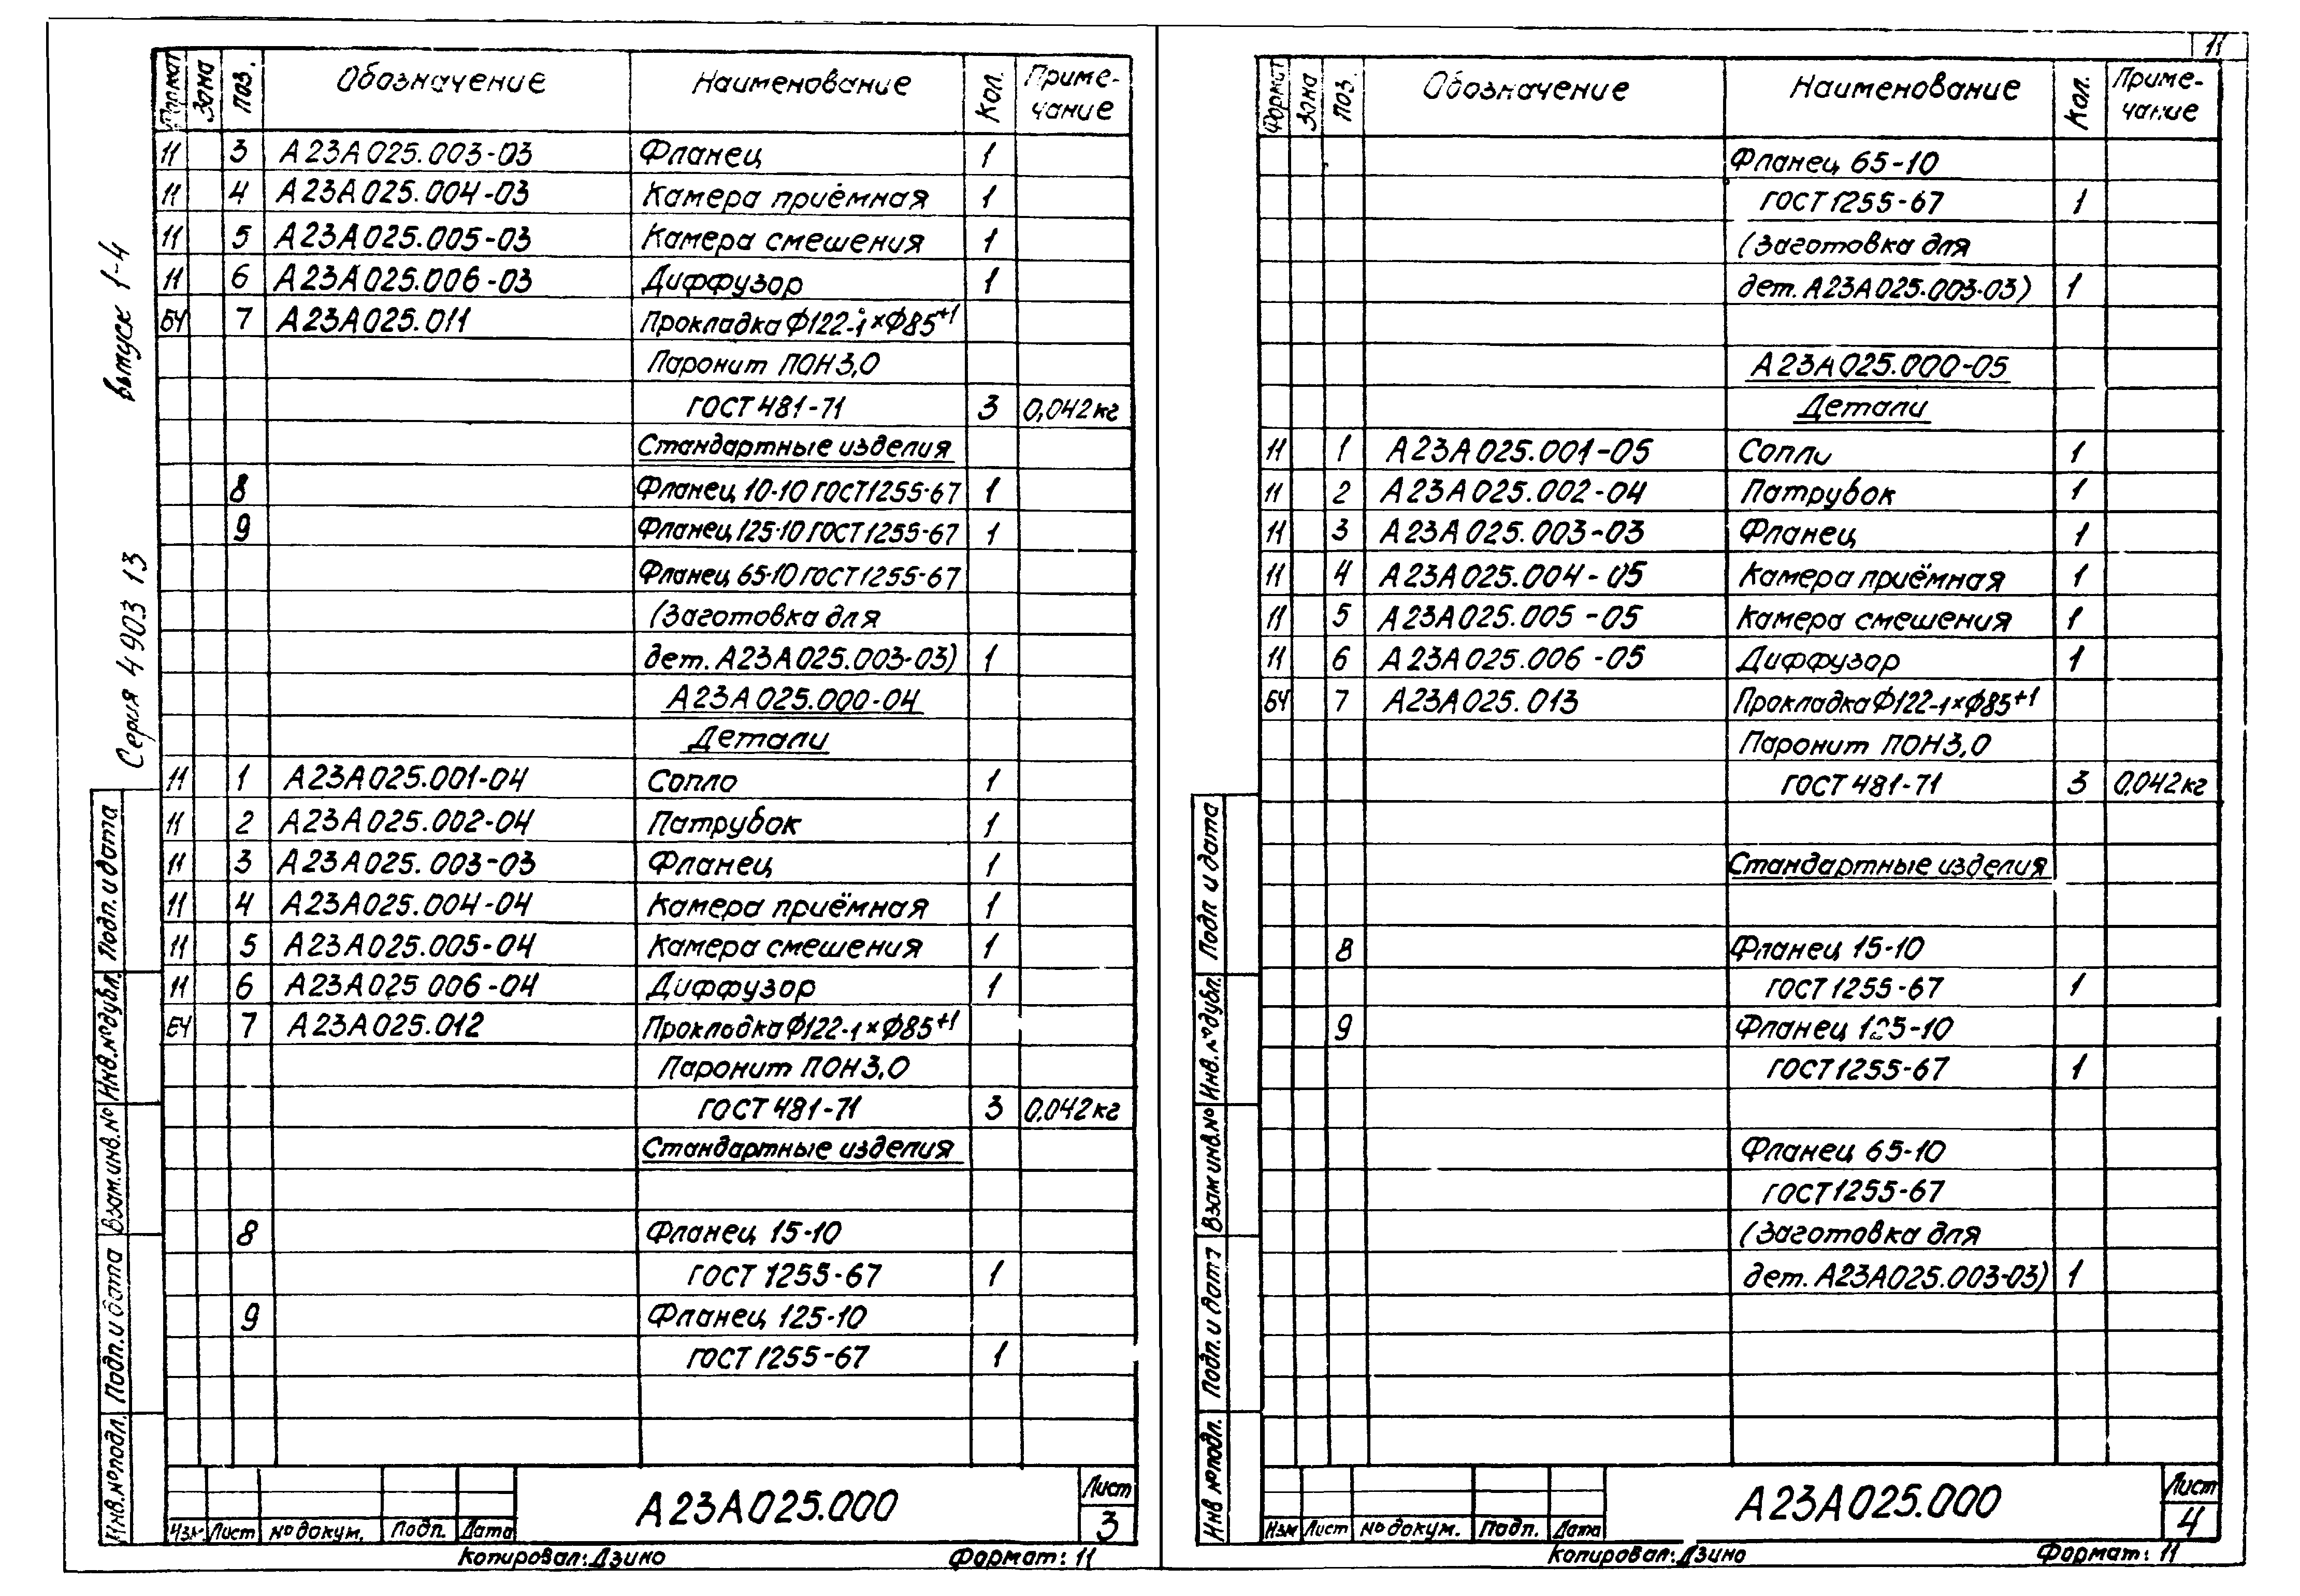 11
Серия 4 903 13 выпуск 1-4
Формат Зона Поз. Обозначение Наименование Кол. Приме-
чание
11 3 А23А025.003-03 Фланец 1
11 4 А23А025.004-03 Камера приёмная 1
11 5 А23А025.005-03 Камера смешения 1
11 6 А23А025.006-03 Диффузор 1
БЧ 7 А23А025.011 Прокладка Ф122-1×Ф85+1
Паронит ПОН3,0
ГОСТ 481-71 3 0,042кг
Стандартные изделия
8 Фланец 10-10 ГОСТ 1255-67 1
9 Фланец 125-10 ГОСТ 1255-67 1
Фланец 65-10 ГОСТ 1255-67
(Заготовка для
дет. А23А025.003-03) 1
А23А025.000-04
Детали
11 1 А23А025.001-04 Сопло 1
11 2 А23А025.002-04 Патрубок 1
11 3 А23А025.003-03 Фланец 1
11 4 А23А025.004-04 Камера приёмная 1
11 5 А23А025.005-04 Камера смешения 1
11 6 А23А025 006-04 Диффузор 1
БЧ 7 А23А025.012 Прокладка Ф122-1×Ф85+1
Паронит ПОН3,0
ГОСТ 481-71 3 0,042кг
Стандартные изделия
8 Фланец 15-10
ГОСТ 1255-67 1
9 Фланец 125-10
ГОСТ 1255-67 1
Инв.№подл. Подп.и дата Взам.инв.№ Инв.№дубл. Подп.и дата
Изм Лист №докум. Подп. Дата
А23А025.000
Лист
3
Копировал: Дзино Формат: 11
Формат Зона Поз. Обозначение Наименование Кол. Приме-
чание
Фланец 65-10
ГОСТ 1255-67 1
(Заготовка для
дет. А23А025.003-03) 1
А23А025.000-05
Детали
11 1 А23А025.001-05 Сопло 1
11 2 А23А025.002-04 Патрубок 1
11 3 А23А025.003-03 Фланец 1
11 4 А23А025.004-05 Камера приёмная 1
11 5 А23А025.005-05 Камера смешения 1
11 6 А23А025.006-05 Диффузор 1
БЧ 7 А23А025.013 Прокладка Ф122-1×Ф85+1
Паронит ПОН3,0
ГОСТ 481-71 3 0,042кг
Стандартные изделия
8 Фланец 15-10
ГОСТ 1255-67 1
9 Фланец 125-10
ГОСТ 1255-67 1
Фланец 65-10
ГОСТ 1255-67
(Заготовка для
дет. А23А025.003-03) 1
Инв №подл. Подп.и дата Взам инв.№ Инв.№дубл. Подп и дата
Изм Лист №докум. Подп. Дата
А23А025.000
Лист
4
Копировал: Дзино Формат: 11